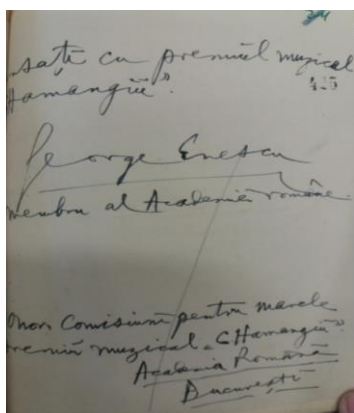 sați cu premiul muzical
Hamangiu".
425
George Enescu
membru al Academiei române.
Onor. Comisiuni pentru marele
premiu muzical „C Hamangiu"
Academia Română
București